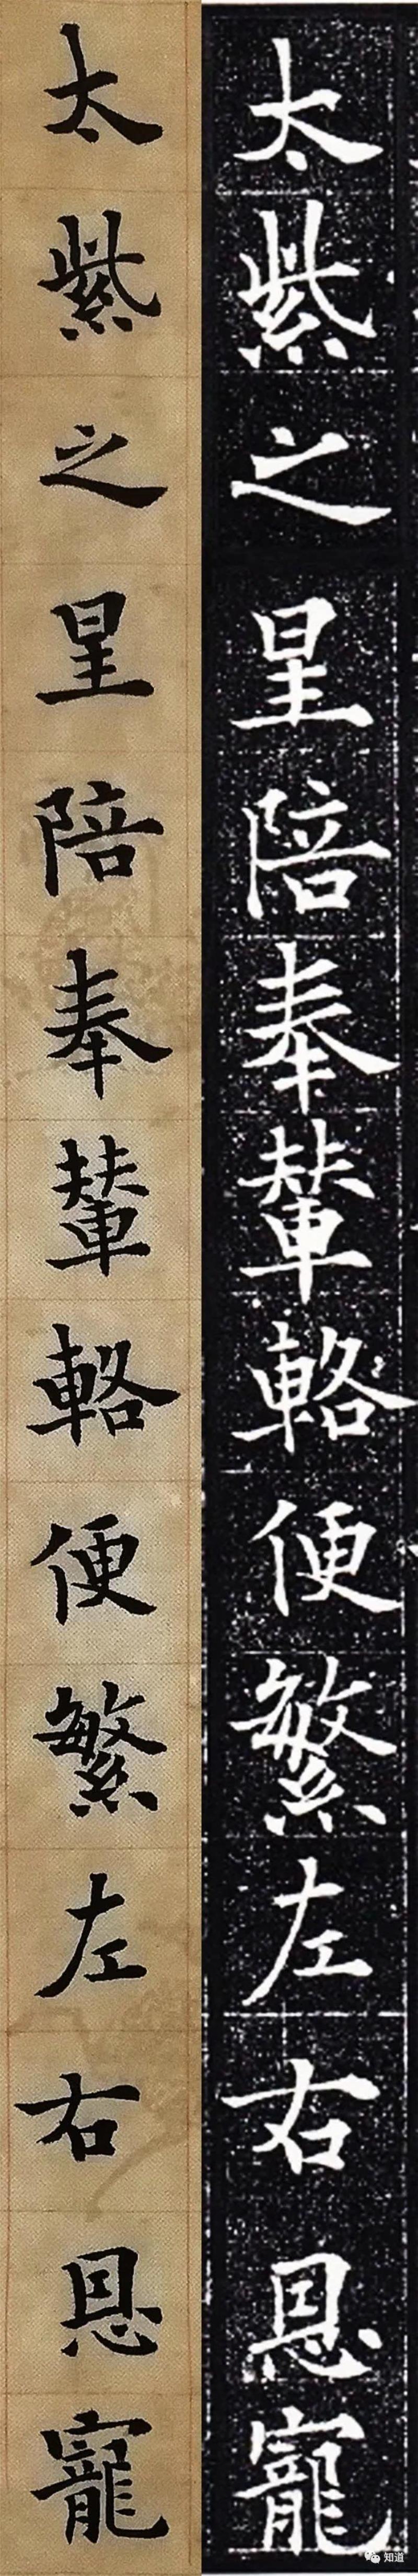 太紫之星陪奉輦輅便繁左右恩寵
太紫之星陪奉輦輅便繁左右恩寵
知道